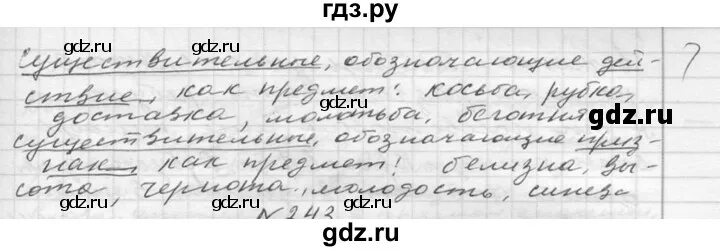 гдз.ру
Существительные, обозначающие дей-
ствие, как предмет: косьба, рубка,
доставка, молотьба, беготня
существительные, обозначающие приз-
нак, как предмет: белизна, вы-
сота, чернота, молодость, синева
№ 243
gdz.ru
gdz.ru
gdz.ru
gdz.ru
gdz.ru
gdz.ru
gdz.ru
gdz.ru